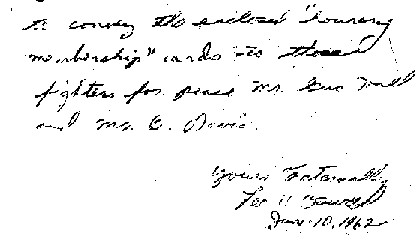 to convey the enclosed "honorary
membership" cards to those
fighters for peace Mr. Gus Hall
and Mr. B. Davis.
Yours Fraternally
Jan. 10, 1962